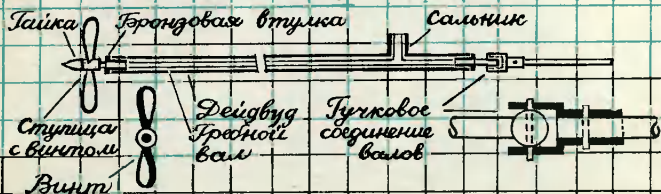 Гайка
Бронзовая втулка
Сальник
Ступица
с винтом
Дейдвуд
Гребной
вал
Гучковое
соединение
валов
Винт